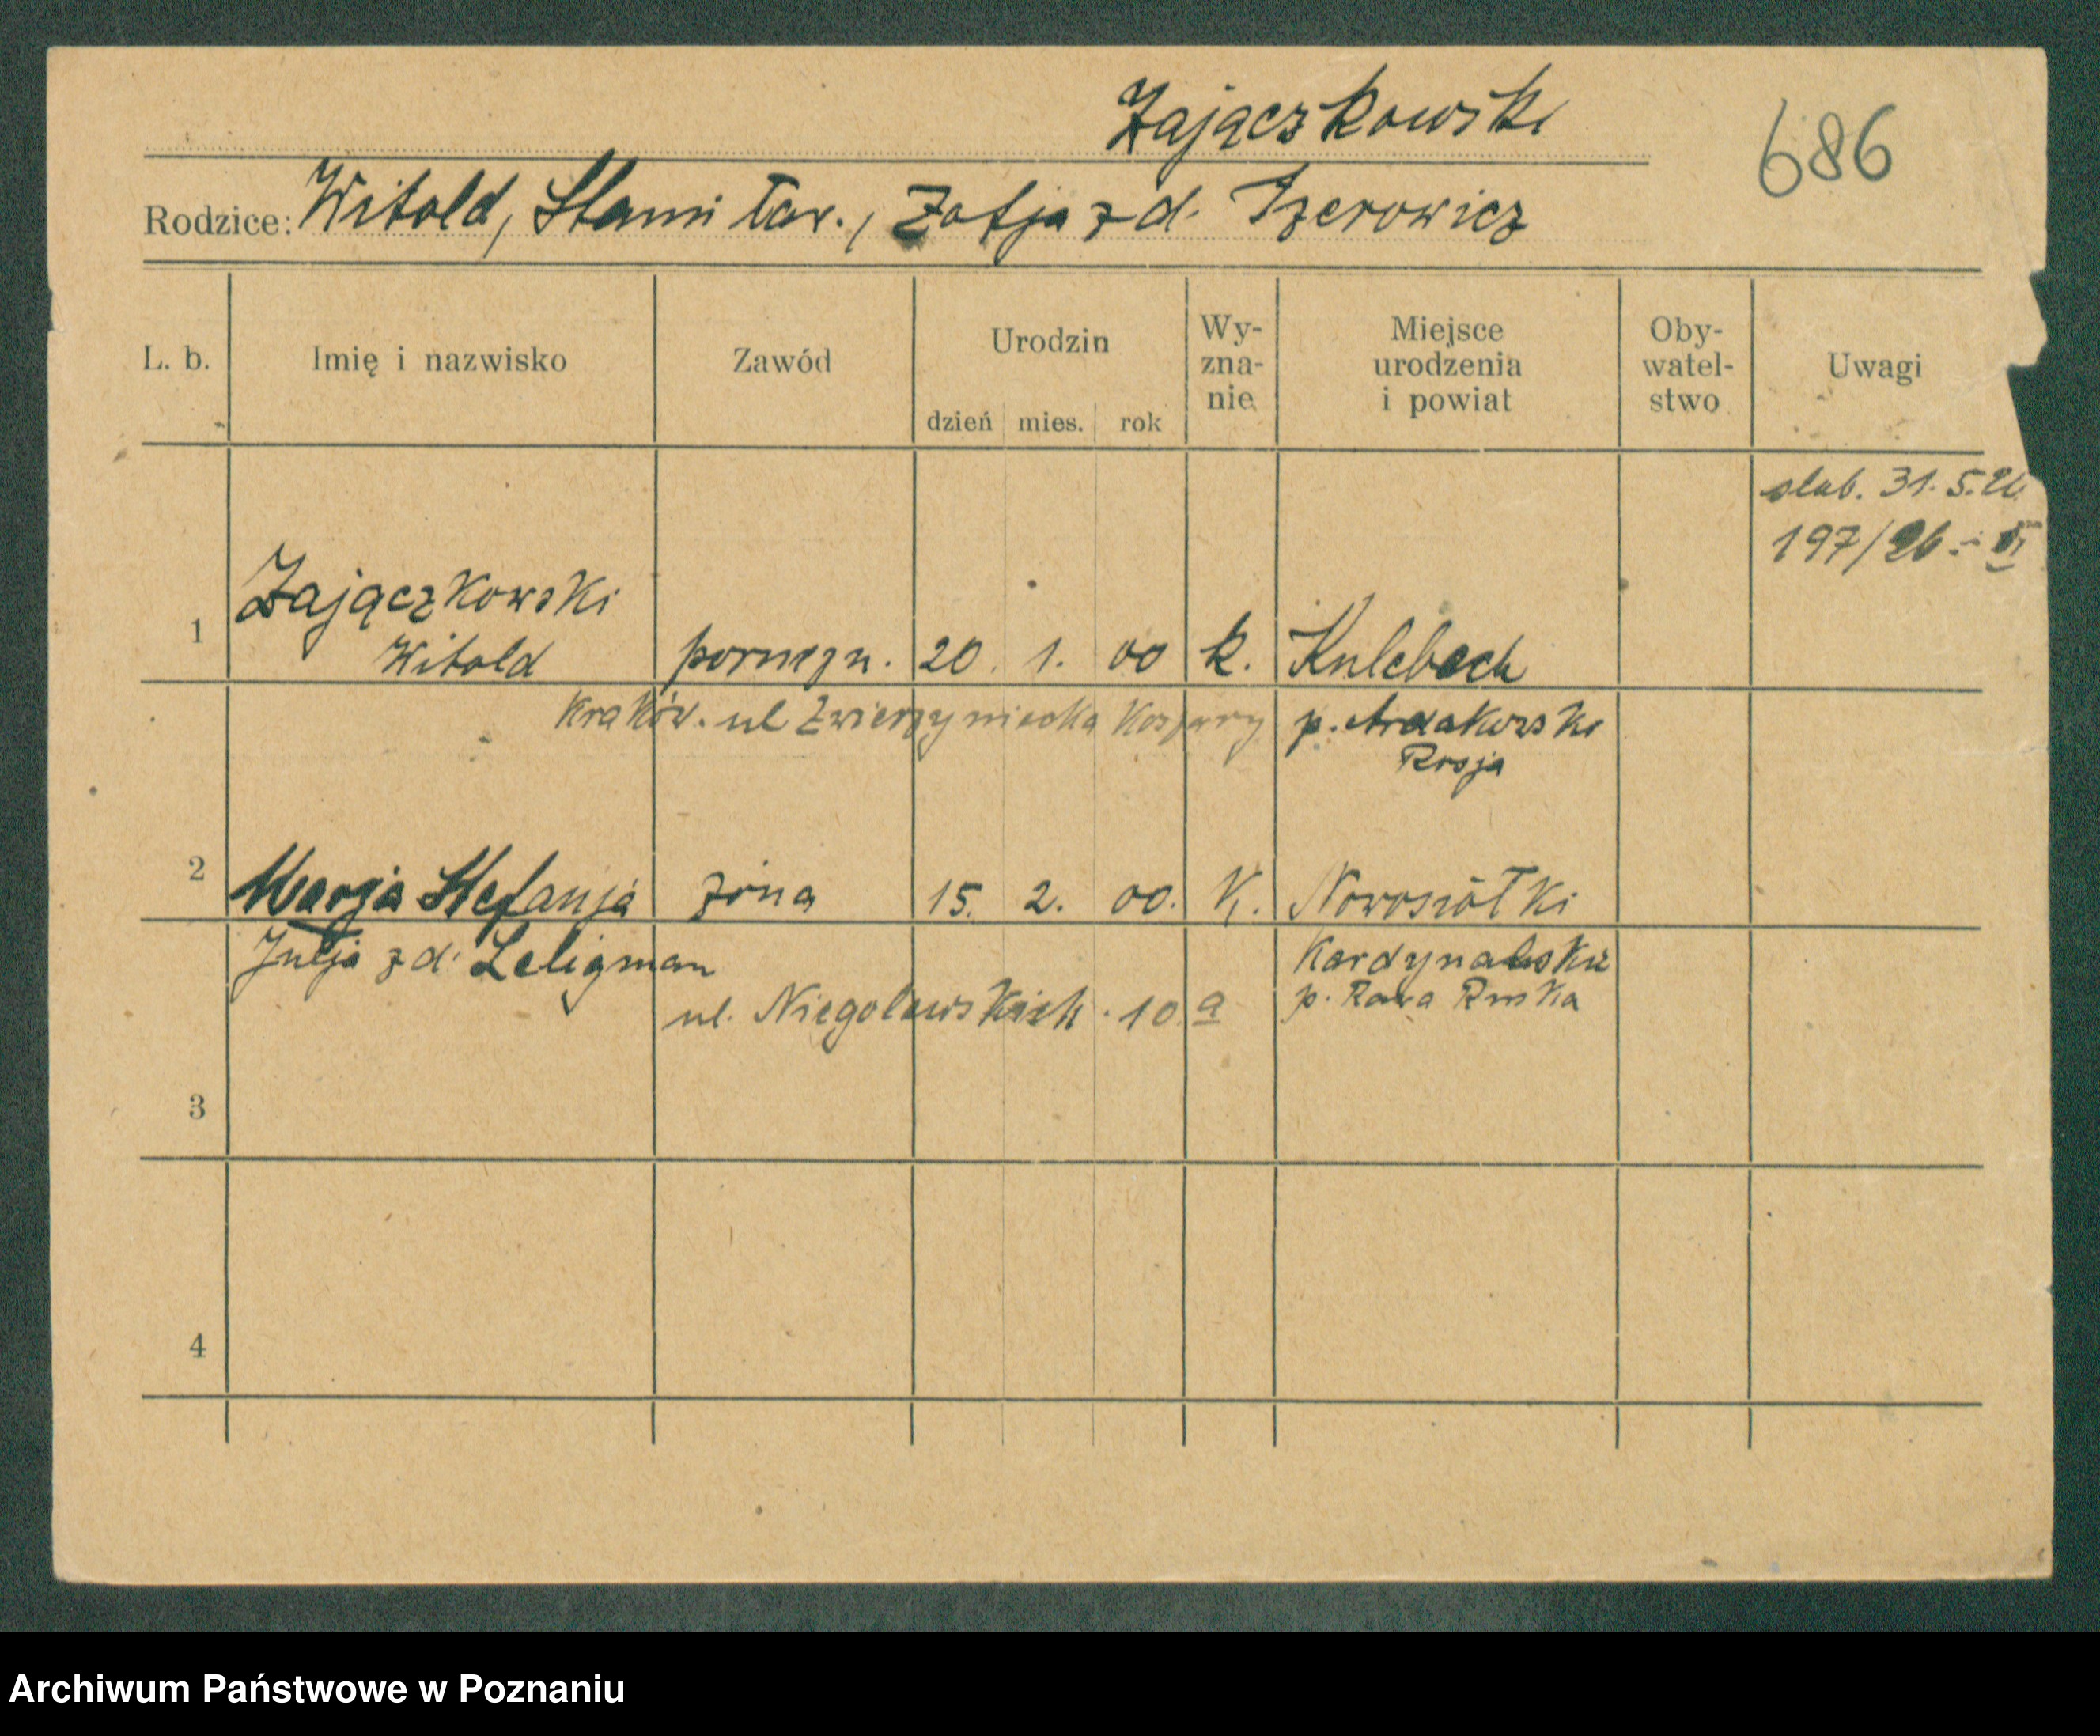 Zajączkowski
686
Rodzice: Witold, Stanisław., Zofja z d. Izerowicz
L. b. Imię i nazwisko Zawód Urodzin dzień mies. rok Wy-zna-nie Miejsce urodzenia i powiat Oby-watel-stwo Uwagi
slub. 31. 5. 26
197/26
Zajączkowski
1 Witold 20. 1. 00 k. Kulebach
Kraków. ul Zwierzyniecka Koszary
Rosja
2 Marja Stefanja żona 15. 2. 00. k. Nowosiółki
Julja z d. Zeligman Kardynalskie
p. Rawa Ruska
ul. Niegolewskich 10 a
3
4
Archiwum Państwowe w Poznaniu